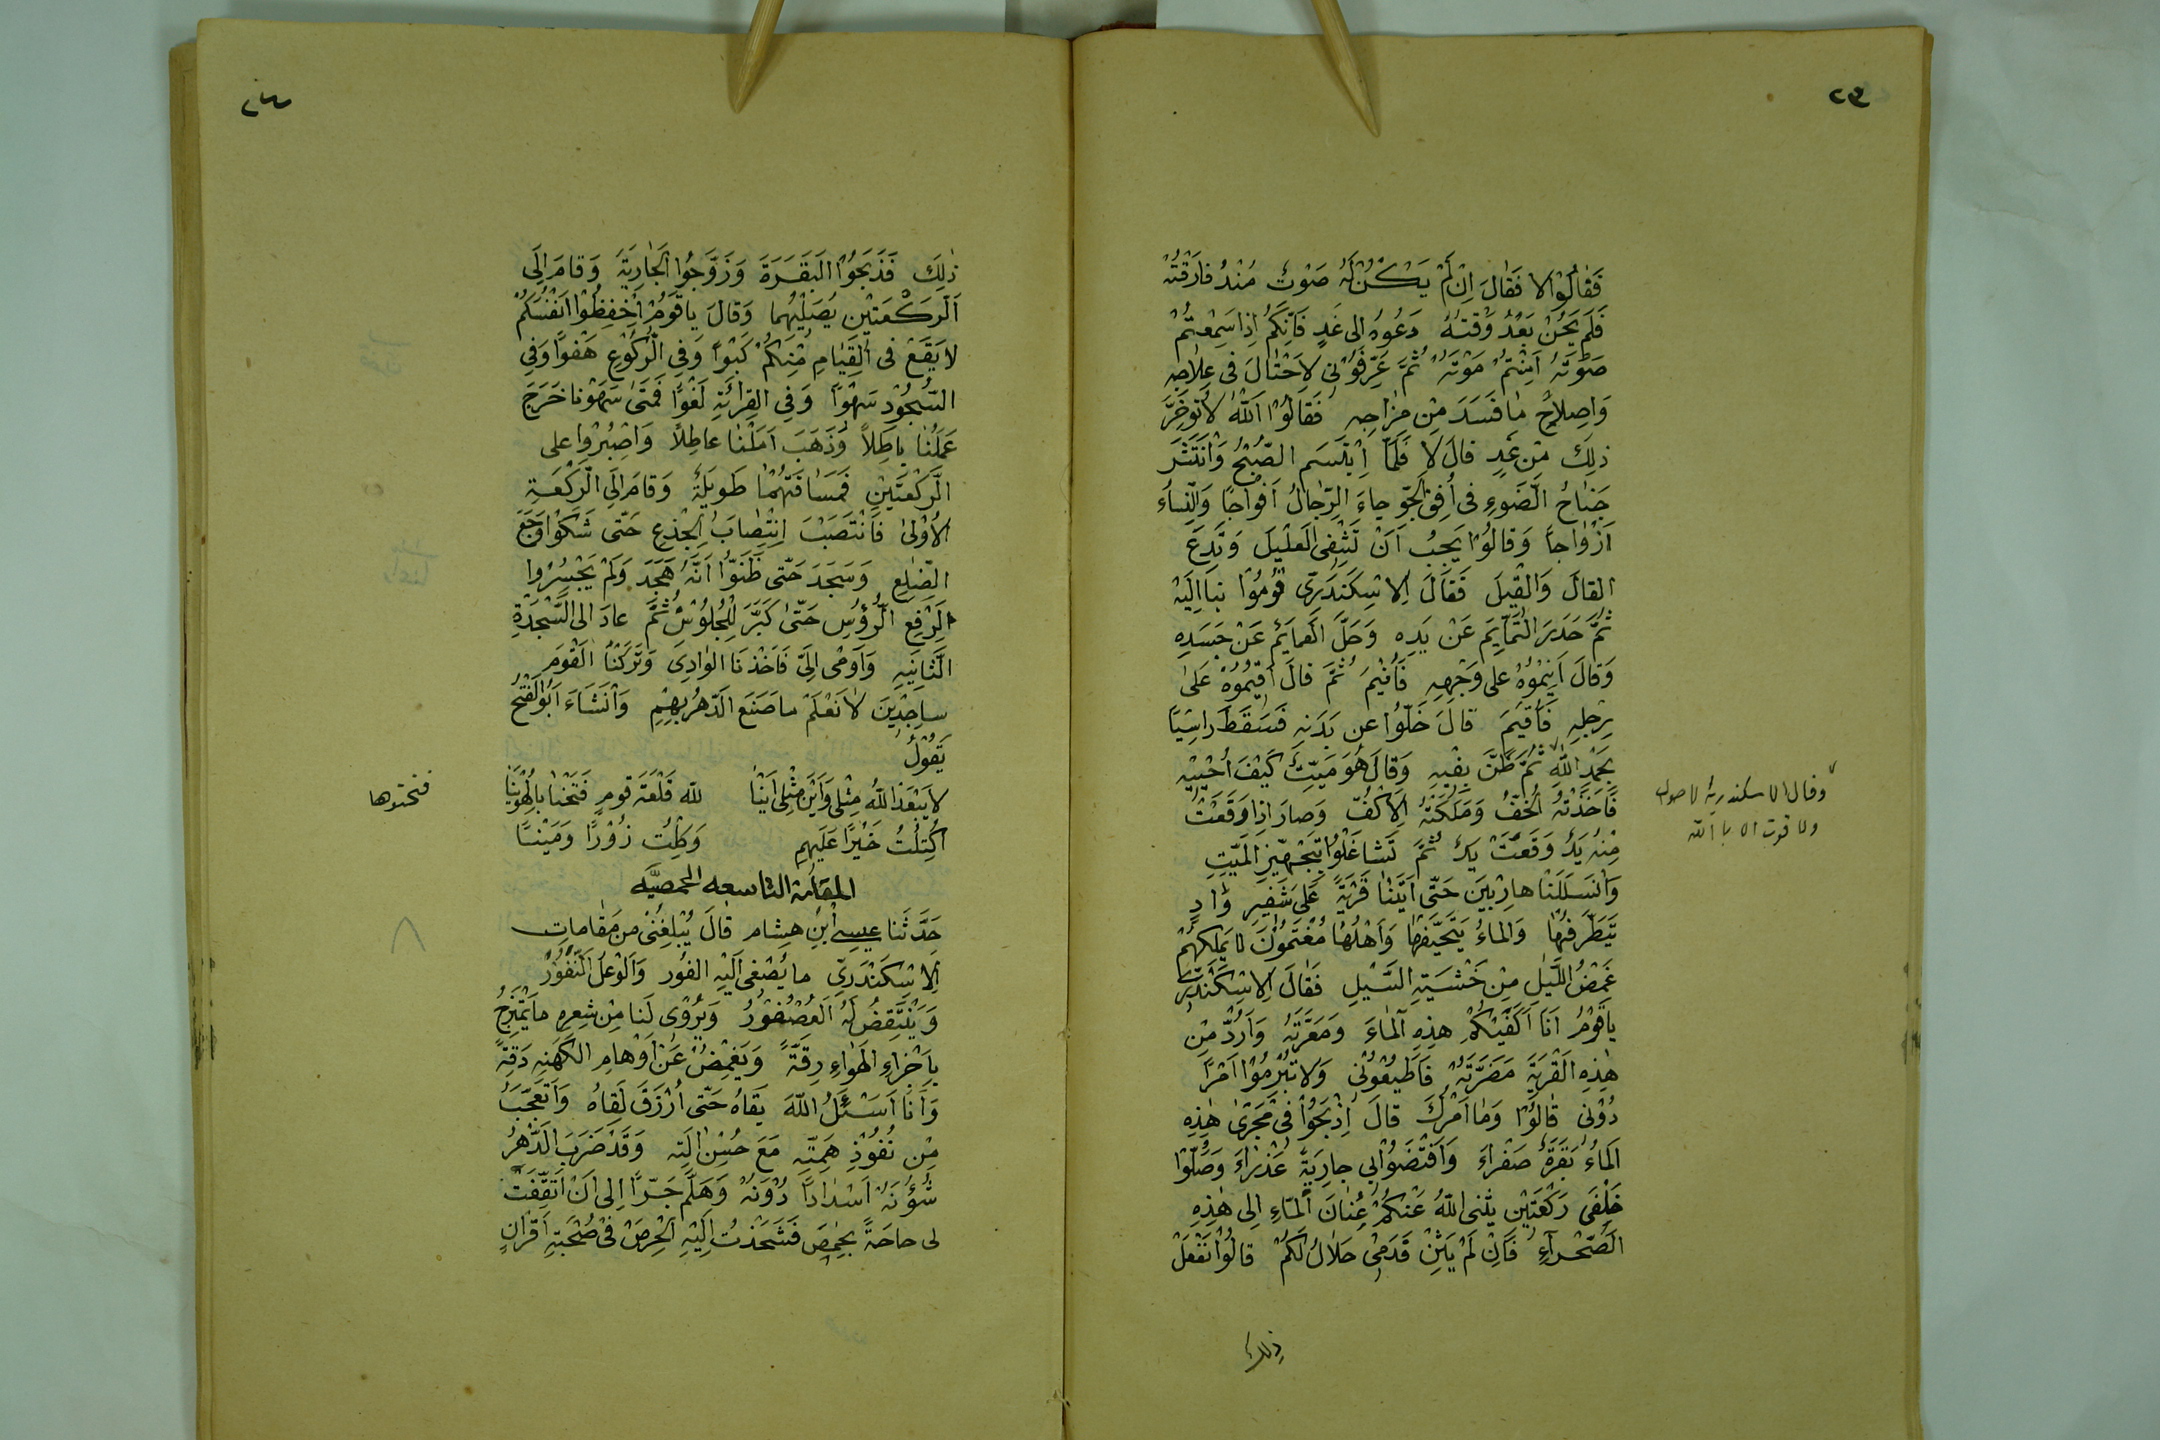 ٢٣
فَقَالُوْا لا فَقَالَ اِنْ لَمْ يَكُنْ لَهُ صَوْتٌ مُنْذُ فَارَقْتُهُ
فَلَمْ يَحُنْ بَعْدُ وَقْتُهُ دَعُوهُ الى غَدٍ فَاِنَّكُمْ اِذَا سَمِعْتُمْ
صَوْتَهُ اَمِنْتُمْ مَوْتَهُ ثُمَّ عَرِّفُوْنِى لِاَحْتَالَ فى عِلاجِهِ
وَاِصلاحِ مَا فَسَدَ مِنْ مِزَاجِهِ فَقَالُوْا اَللّٰهُ لَا تُوَخِّرَ
ذلِكَ مِنْ غَدٍ قالَ لا فَلَمّا اِبْتَسَم الصُّبْحُ وَانْتَشَر
جَنَاحُ الضَّوءِ فى اُفِق الجَوّ جاءَ الرِّجَالُ اَفواجًا وَالنِّساء
اَزْوَاجاً وَقَالُوْا يَجِبُ اَنْ تَشْفِىَ العَليْلَ وَتَدَعَ
القالَ وَالقِيلَ فَقَالَ الاِسْكَنَدَرِىّ قُومُوْا بِنا اِلَيْهِ
ثُمَّ حَدَرَ التَّمَآيِمَ عَنْ يَدِهِ وَحَلَّ العَمايَمَ عَنْ جَسَدِهِ
وَقَالَ اَنِيْمُوْهُ على وَجْهِهِ فَاُنِيْمَ ثُمَّ قالَ اَقِيْمُوْهُ عَلىٰ
رِجْلِهِ فَاُقيْمَ قالَ خَلُّوْا عن يَدَيهِ فَسَقَطَ راسِيًا
بِحَمْدِ اللّٰهِ ثُمَّ طَنَّ بِفِيْهِ وَقَالَ هُوَ مَيِّتٌ كَيْفَ اُحْيِيْهِ
فَاَخَذْتُهُ الخُفُّ وَمَلَكَتْهُ الاَكُفّ وَصارَ اِذا وَقَعَتْ
مِنْهُ يَدٌ وَقَعَتْ يَدٌ ثُمَّ تَشَاغَلُوْا بِتَجْهِيْزِ المَيِّتِ
وَانْسَلَلَنا هارِبِينَ حَتّى اَتَيْنَا قَرْيَةً عَلى شَفِيْرِ وَادٍ
يَتَطَرَّفُهَا وَالماءُ يَتَحَيَّفُهَا وَاَهْلُهَا مُغْتَمُّوْنَ لا يَمْلِكُهُمْ
غَمْضُ اللَّيل مِنْ خَشْيَةِ السَّيْلِ فَقالَ الاِسْكَنْدَرِىّ
يا قَوْمُ اَنَا اَكْفِيْكُمْ هذِهِ اَلماءَ وَمَعَرَّتَهُ وَاَرُدُّ مِنْ
هٰذِهِ القَرْيَةِ مَضَرَّتَهُ فَاَطِيْعُوْنى وَلا تُبْرِمُوْا اَمْرًا
دُوْنى قَالُوْا وَمَا اَمْرُكَ قالَ اِذْبَحُوْا فى مَجْرَى هٰذِهِ
الماءِ بَقَرَةً صَفْراءَ وَافْتَضُّوْا لِى جارِيَةً عَذْراءَ وَصَلُّوْا
خَلْفى رَكْعَتَيْنِ يَثْنى اللّٰهُ عَنكُمْ عِنَانَ المَاءِ اِلى هٰذِهِ
الصَّحْراءِ فَاِنْ لَمْ يَثْنِ فَدَمِىْ حَلالٌ لَكُمْ قالُوْا نَفْعَلْ
وقال الاسكندريه لا حول
ولا قوت الا با الله
ذلك
٢٤
ذٰلِكَ فَذَبَحُوْا البَقَرَةَ وَزَوَّجُوا الجَارِيَةَ وَقامَ اِلَى
اَلرَكْعَتَيْنِ يُصَلِّيْهِمَا وَقالَ يا قَوْمُ اِحْفِظُوْا اَنْفُسَكُمْ
لا يَقَعْ فى اْلقِيَامِ مِنْكُمْ كَبْوًا وَفِى الرُّكُوْعِ هَفْوًا وَفِى
السُّجُوْدِ سَهْوًا وَفى القِرْائَةِ لَغْوًا فَمَتى سَهَوْنا خَرَجَ
عَمَلُنا بِاطِلاً وَذَهَبَ اَمَلُنا عاطِلاً وَاصْبِرُوا على
الَّركْعَتَيْنِ فَمَسافَتُهُمَا طَوِيْلَةٌ وَقامَ اِلَى الرَّكْعَةِ
الاُوْلى فَانْتَصَبَ اِنْتِصَابَ الجِذعِ حَتّى شَكَوْا وَجَعَ
الضِّلْعِ وَسَجَدَ حَتّى ظَنّوُّا اَنَّهُ هَجَدَ وَلَمْ يَجْسُرُوا
لِرَفْعِ الرُّؤُسِ حَتّى كَبَّرَ لِلْجُلُوْسِ ثُمَّ عادَ الى السَّجْدَةِ
الثَّانِيَةِ وَاَوْمى اِلىَّ فَاَخَذْنَا الوَادِىَ وَتَرَكْنَا القَوْمَ
ساجِدِيْنَ لا نَعْلَمُ ما صَنَعَ الدّهْرُ بِهِمْ وَاَنْشَاءَ اَبُو الْفَتْحُ
يَقُوْلُ
لا يُبْعِدَ اللّٰهُ مِثْلِى وَاَيْنَ مِثْلِى اَيْنا للّٰه قَلْعَة قَومٍ فَتَحْنا بِالهُوَيْنَا
اُكْتِلْتُ خَيْرًا عَلَيهِم وَكِلْتُ زُوْرًا وَمَيْنًا
المقامة التاسعه الحمصيّه
حَدَّثَنا عيسى ابْنِ هِشام قالَ يُبْلِغُنى من مَقامات
الاِسْكَنْدَرِىّ ما يُصْغى اَلَيْهِ الفُور وَالْوَعِلُ النَّفُوْرُ
وَيَنْتَقِضُ لَهُ العُصْفُوْرُ وَيُرْوى لَنا مِنْ شِعِرِهِ ما يَمْتَزِجُ
بِاَجْزَاءِ الهَواءِ رِقَّةً وَيَغْمِضُ عَنْ اَوْهامِ الكَهَنِهِ دِقَّةً
وَاَنا اَسْئَلُ اللّٰهَ بَقَاهُ حَتّى اُرْزَقَ لِقاهُ وَاَتَعَجَّبُ
مِنْ نُفُوْذِ هِمَّتِهِ مَعَ حُسْنِ الَتِهِ وَقَدْ ضَرَبَ الدَّهْرُ
شُؤُنَهُ اَسْدادًا دُوْنَهُ وَهَلُمَّ جَرًّا اِلى اَنْ اَتَّفَقَت
لى حاجَةً بِحِمْصَ فَشَحَذتُ اِلَيْهِ الحِرصَ فى صُحْبَةِ اَفْرانٍ
فتحتوها
٨